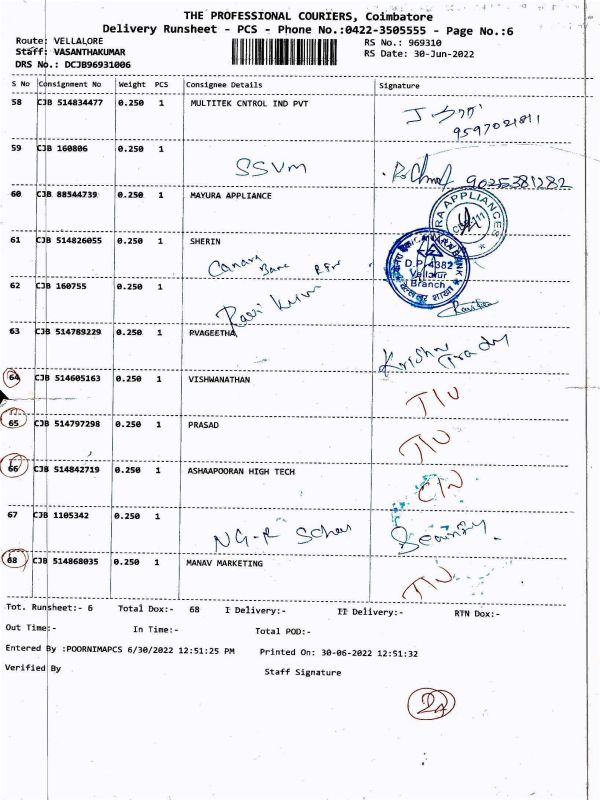 THE PROFESSIONAL COURIERS, Coimbatore
Delivery Runsheet - PCS - Phone No.:0422-3505555 - Page No.:6
Route: VELLALORE RS No.: 969310
Staff: VASANTHAKUMAR RS Date: 30-Jun-2022
DRS No.: DCJB96931006
S No Consignment No Weight PCS Consignee Details Signature
58 CJB 514834477 0.250 1 MULTITEK CNTROL IND PVT
9597021811
59 CJB 160806 0.250 1
SSVM 9025381282
60 CJB 88544739 0.250 1 MAYURA APPLIANCE
RA APPLIANCES
61 CJB 514826055 0.250 1 SHERIN
Canara
D.P. 4382
Vellalur
Branch
62 CJB 160755 0.250 1
Ravi Kumar
63 CJB 514789229 0.250 1 RVAGEETHA
Krishna
64 CJB 514605163 0.250 1 VISHWANATHAN
65 CJB 514797298 0.250 1 PRASAD
66 CJB 514842719 0.250 1 ASHAAPOORAN HIGH TECH
67 CJB 1105342 0.250 1
68 CJB 514868035 0.250 1 MANAV MARKETING
Tot. Runsheet:- 6 Total Dox:- 68 I Delivery:- II Delivery:- RTN Dox:-
Out Time:- In Time:- Total POD:-
Entered By :POORNIMAPCS 6/30/2022 12:51:25 PM Printed On: 30-06-2022 12:51:32
Verified By Staff Signature